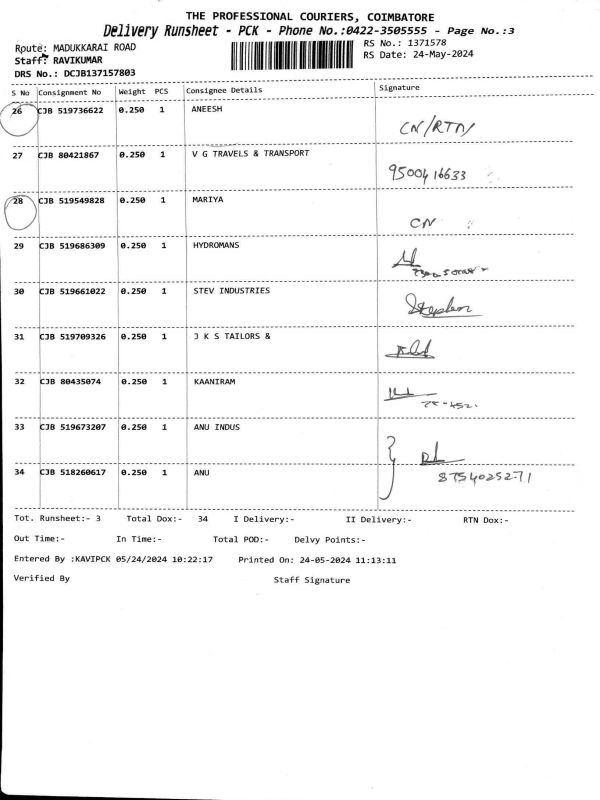 THE PROFESSIONAL COURIERS, COIMBATORE
Delivery Runsheet - PCK - Phone No.:0422-3505555 - Page No.:3
Route: MADUKKARAI ROAD RS No.: 1371578
Staff: RAVIKUMAR RS Date: 24-May-2024
DRS No.: DCJB137157803
S No Consignment No Weight PCS Consignee Details Signature
26 CJB 519736622 0.250 1 ANEESH
CN/RTN
27 CJB 80421867 0.250 1 V G TRAVELS & TRANSPORT
9500416633
28 CJB 519549828 0.250 1 MARIYA
CN
29 CJB 519686309 0.250 1 HYDROMANS
30 CJB 519661022 0.250 1 STEV INDUSTRIES
Stephen
31 CJB 519709326 0.250 1 J K S TAILORS &
32 CJB 80435074 0.250 1 KAANIRAM
33 CJB 519673207 0.250 1 ANU INDUS
34 CJB 518260617 0.250 1 ANU
8754025271
Tot. Runsheet:- 3 Total Dox:- 34 I Delivery:- II Delivery:- RTN Dox:-
Out Time:- In Time:- Total POD:- Delvy Points:-
Entered By :KAVIPCK 05/24/2024 10:22:17 Printed On: 24-05-2024 11:13:11
Verified By Staff Signature